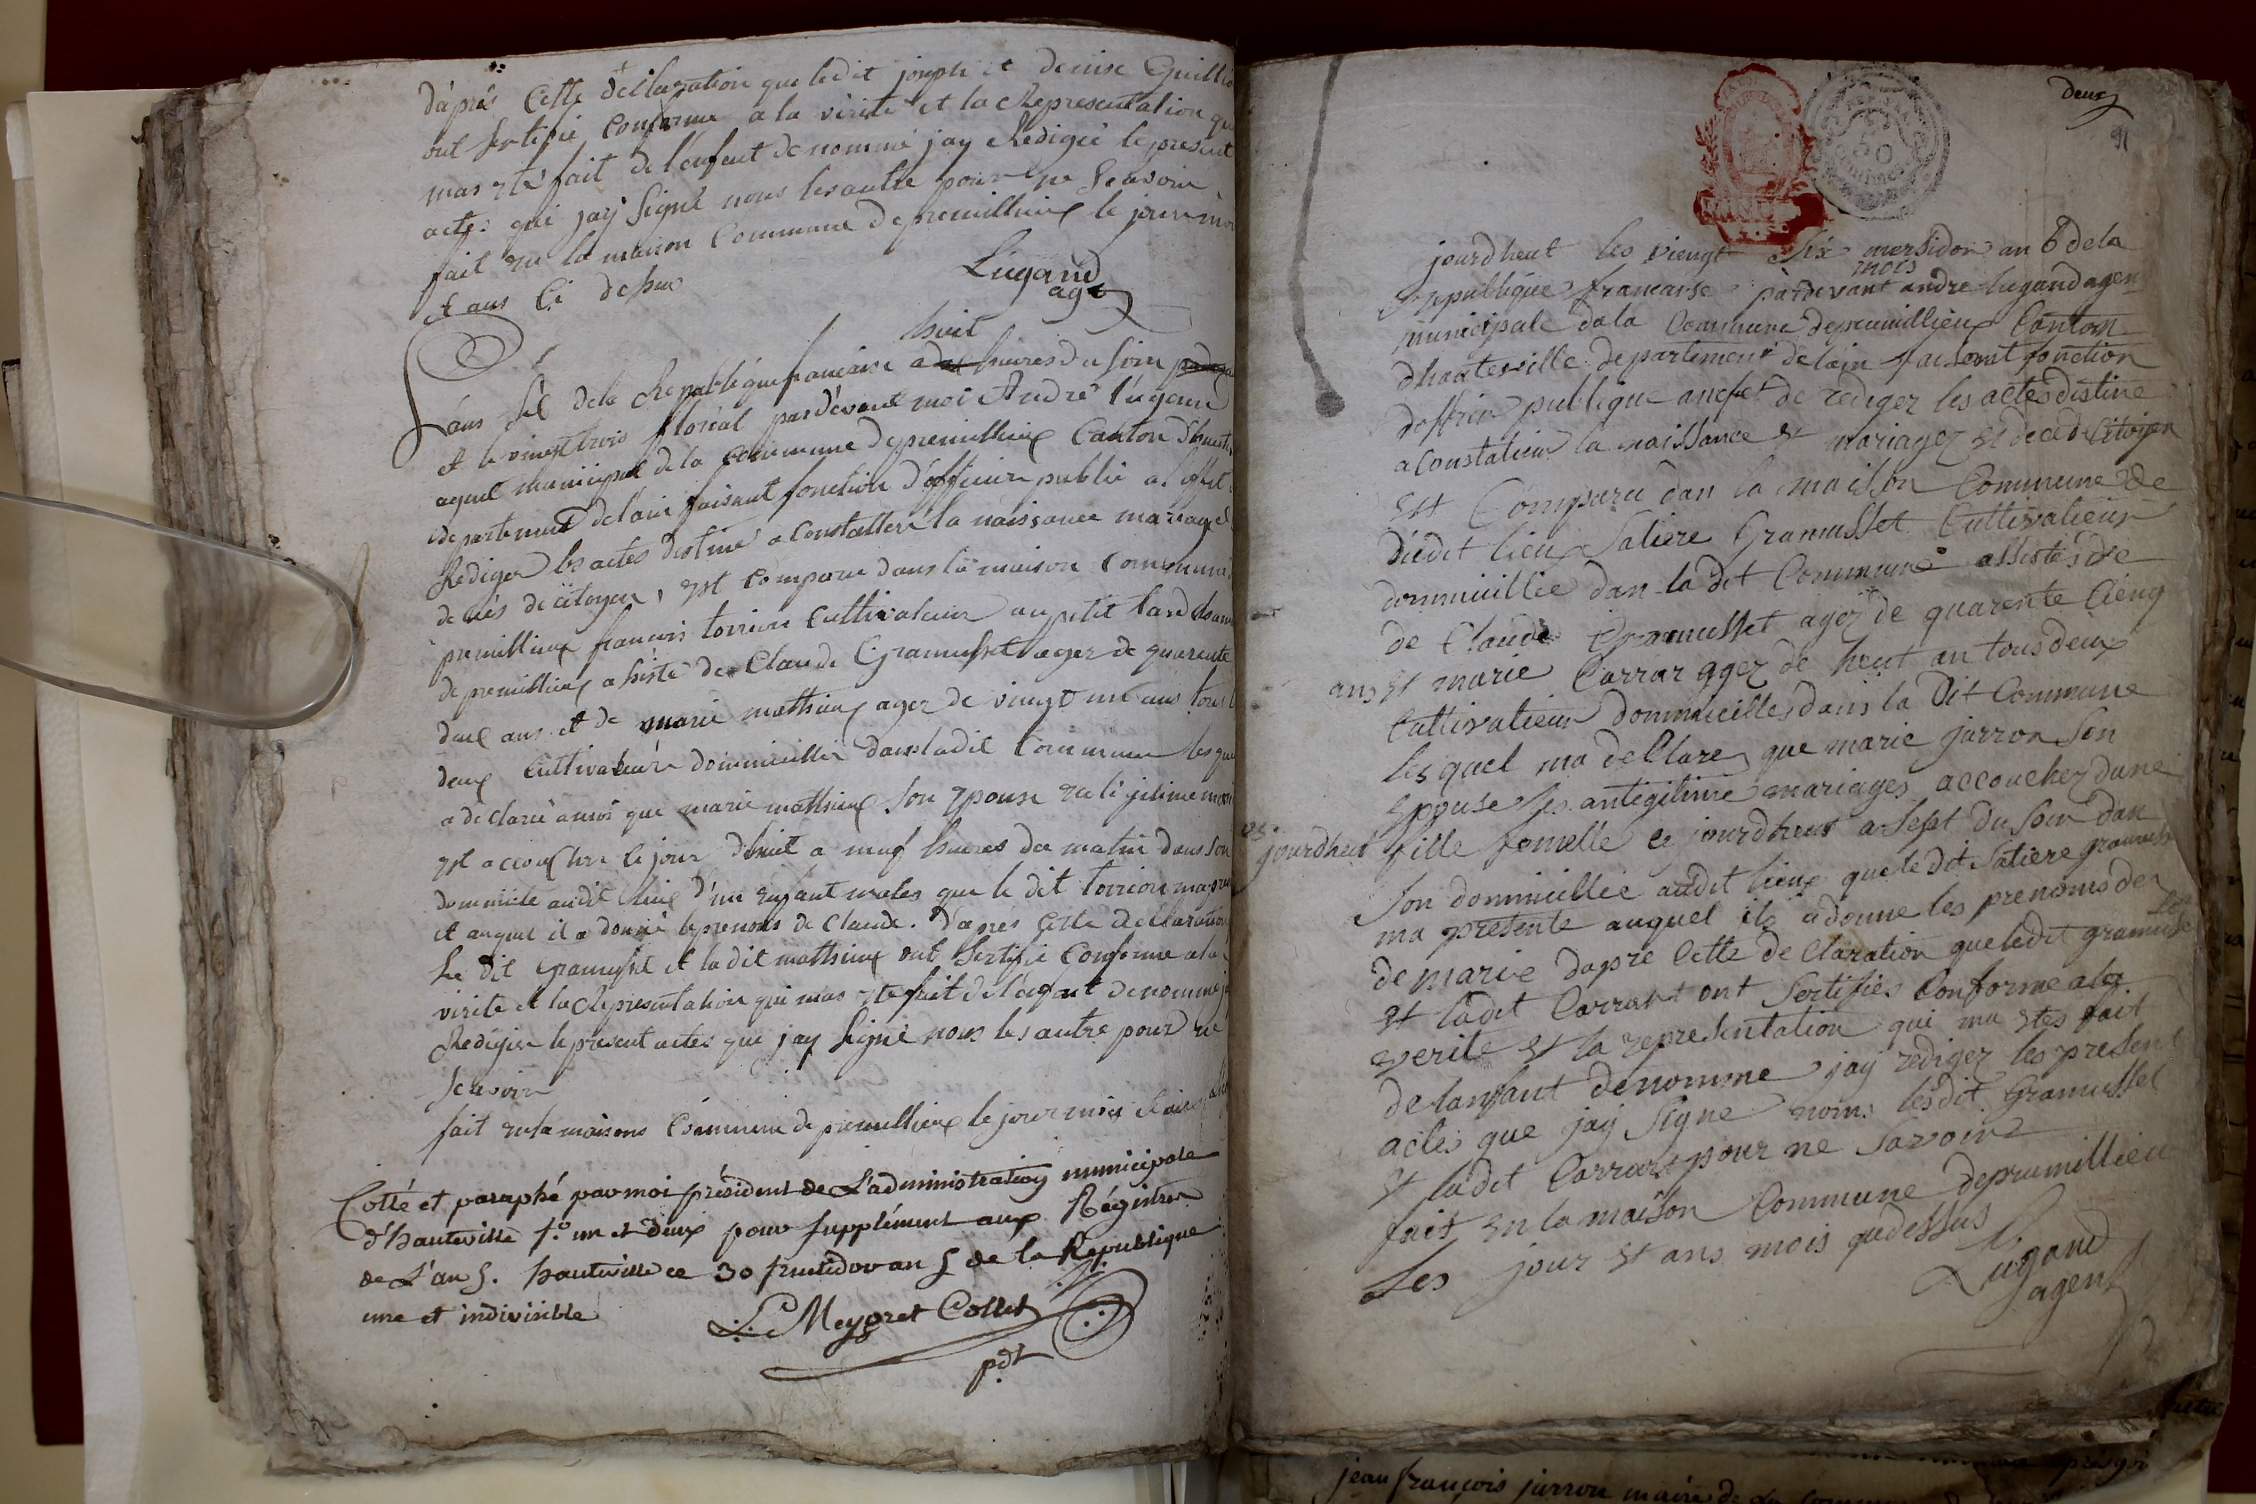 d'après Cette déclaration que ledit joseph et denise Guilli
ont sertifié Conforme a la vérité et la Représentation qu
mas eté fait de l'enfant denommé jay Redigié le present
acte: que jay Signé nous les autre pour ne Seavoir
fait en la maison Commune de premillieux le jour moi
et ans Ci dessue
Lugand
agt
huit
Lans six dela Republique francaise a heures du soire
et le vinext trois floréal pardevant moi André Lugand
agent municipal de la Commune de premillieux Canton d'haute
departement delain faisant fonction d'officier public a leffet
Rediger les actes destiné a Constatter la naissance mariages
decies de citoyen, est Comparu dans la maison Commune
premillieux francois torrion Cultivateur au petit
de premillieux assisté de Claude Gramusset agez de quarente
deux ans et de marie mathieux agez de vingt un ans tous
deux Cultivateur dommicillier dans ladit Commune les quel
a declaré a moi que marie mathieux son epouse en légitime
est accoucher le jour d'huit a neuf heures du matin dans son
domicile audit lieux d'un enfant males que le dit torrion ma
et auquel il a donné le prenoms de Claude. d'apres Cette declaration
Le dit Gramusset et la dit mathieux ont sertifié Conforme a la
virité et la Representation qui mas ete fait de l'enfant denommé
Rediger le present actes que jay Signé nous les autre pour ne
seavoir
fait en la maisons Commune de premillieux le jour mois
Cotté et paraphé par moi président de L'administration municipale
d'hauteville f.º un et deux pour supplément aux Régistres
de L'an 5. hauteville ce 30 fructidor an 5 de la République
une et indivisible
L. Meygret Collet
pdt
deux
50
jourdheut les viengt six mersidor an 6 dela
moi
reppublique francaise pardevant andre lugand agen
municipale dela Commune depremillieux Canton
dhauteville departement delain faisant fonction
doffficie publique aneffet de rediger les actes distine
a Constatieur la naissance et mariagez et deced Citoyen
est Comparu dan la maison Commune de
diedit lieux Saliere Gramusset Cultivatieur
dommicillie dan la dit Commune assistés de
de Claude Gramusset agez de quarente Cienq
ans et marie Carrar agez de heut an tous deux
Cultivatieur dommicilles dans la dit Commune
lesquel ma dellare que marie jarron son
eppuse les antegitime mariages accouchez dune
ce jourdheut fille femelle ce jourdheut a sept du soir dan
son dommicillie audit lieux que le dit Saliere gramusse
ma presente auquel ils a donne les prenoms de
de marie dapre Cette de Claration que ledit gramusse
et ladit Carrart ont sertifies Conforme a la
verite et la representation qui ma etes fait
delanfant denomme jay rediger les present
actes que jay Signe noms lesdit Gramusset
et ladit Carrart pour ne Savoire
fait en la maison Commune depremillieu
Les jour et ans mois quedessus
Lugand
agent
jean françois jarron maire de la Commune